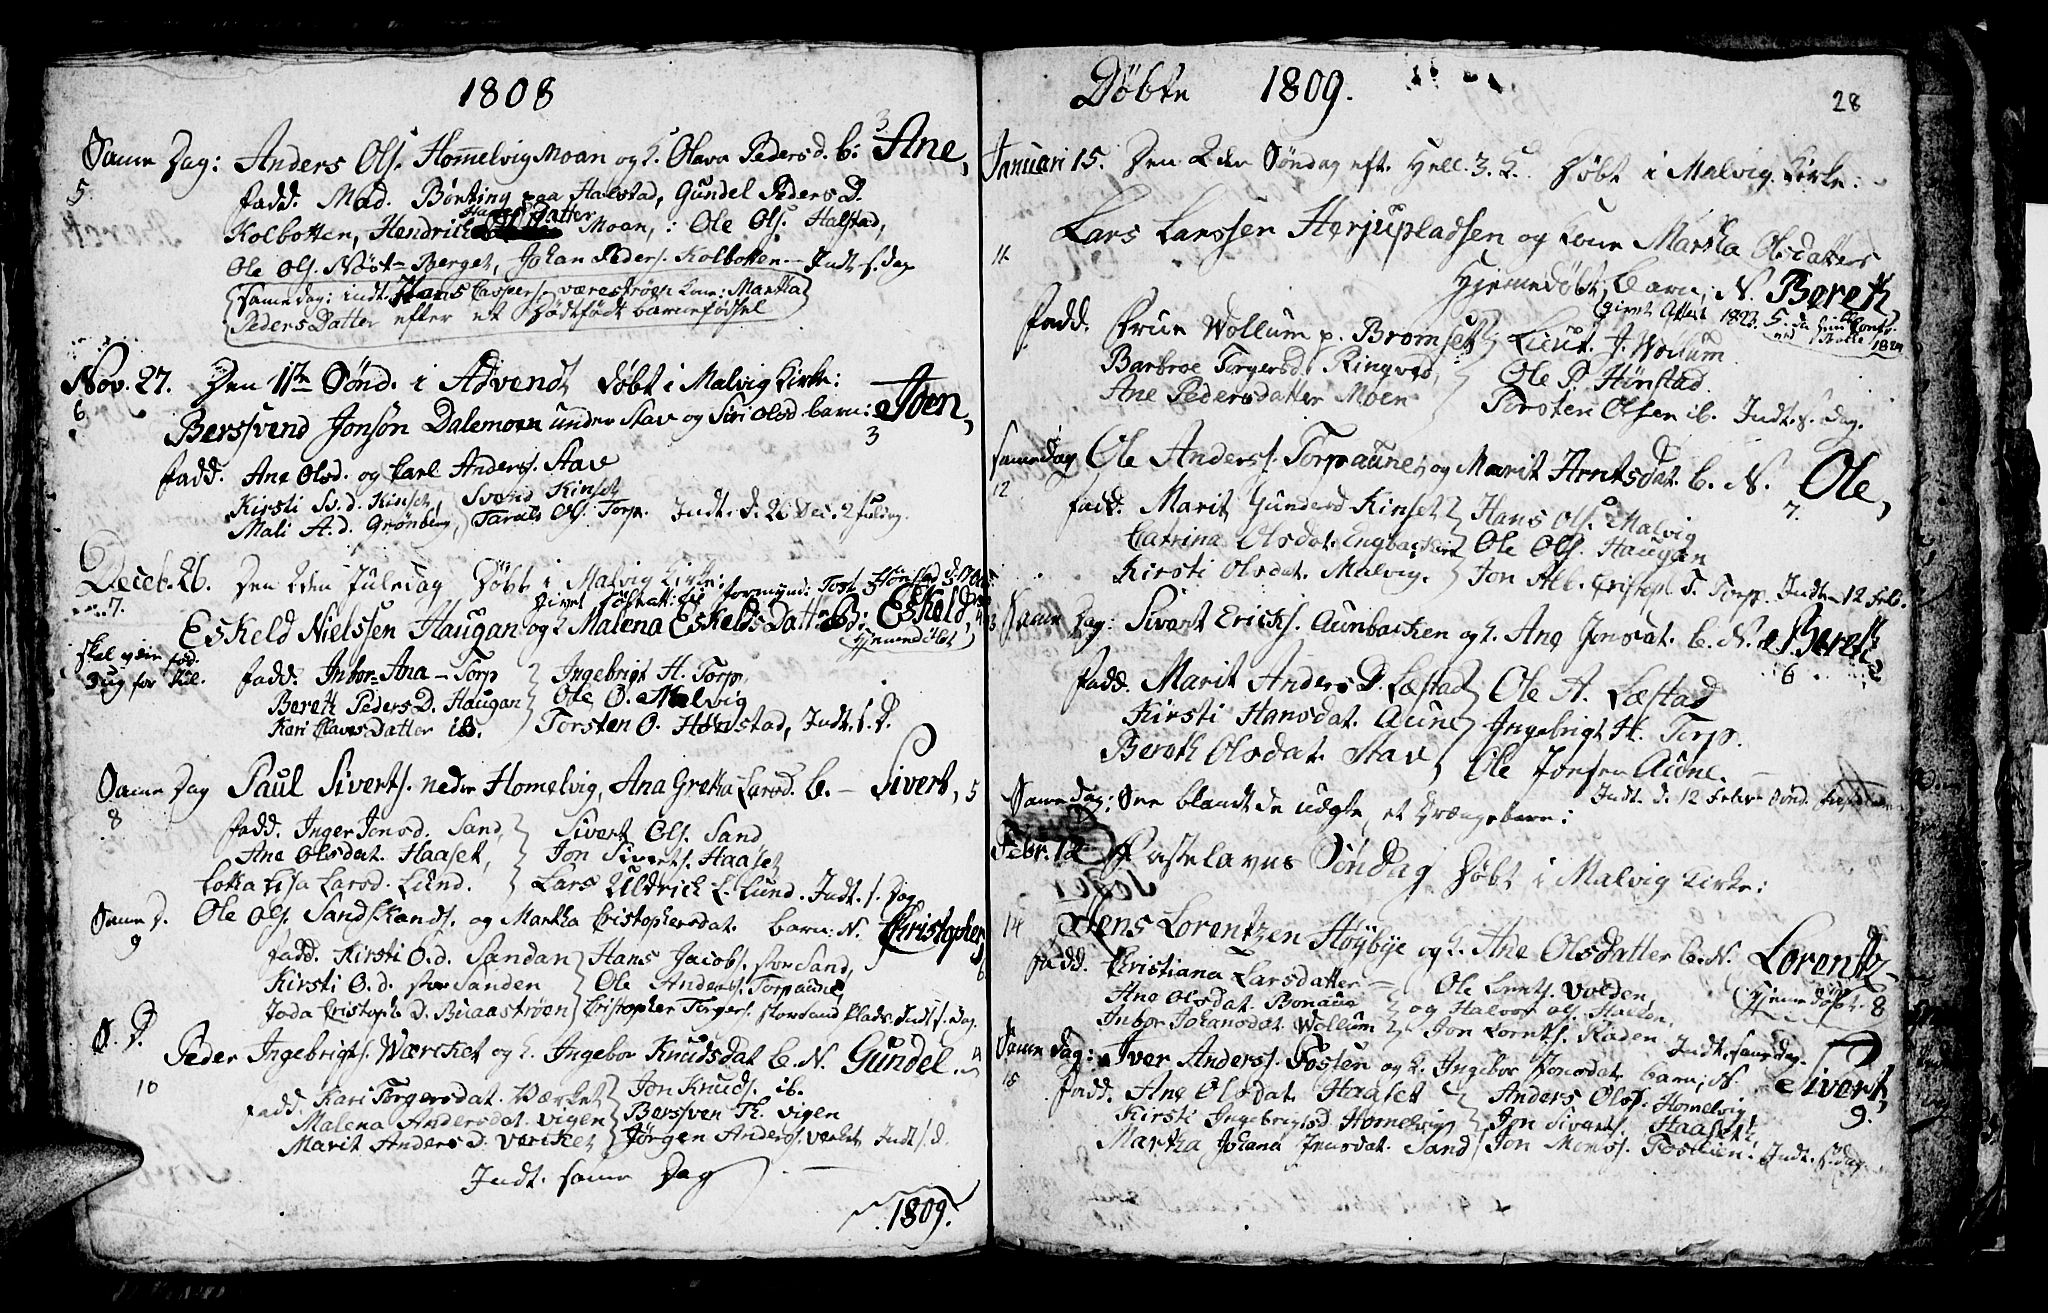 1808
Same Dag: Anders Ols. Homelvig Moan og K. Olava Pedersd. b: Ane,
3
5. fadd. Mad. Bønting paa Halstad, Gundel Peders D.
Kolbotten, Hendrich Moan, : Ole Ols. Halstad,
Datter
Ole Ols. Nøst-Berget, Johan Peders. Kolbotten - Indt. s. dag
Samedag: indt. Hans Caspers. værestrøen Kone: Martha
Peders Datter efter et dødfødt barnefødsel
Nov. 27. Den 1ste Sönd. i Advend døbt i Malvig Kirke:
6 Berssvend Jonsön Dalemoen under Stav og Siri Olsd barn: Joen,
3
fadd. Ane Olsd. og Carl Anders. Stav
Kirsti S.d. Kinset, Svend Kinset
Mali A.d. Grönberg, Tarald Ols. Torp. Indt. d. 26 Dec. 2 Juledag.
Deceb. 26. Den 2den Juledag Døbt i Malvig Kirke:
7. Eskeld Nielssen Haugan og K Malena Eskelds Datter B: Eskeld
Hjemedöbt
fadd. Inbor-Ana-Torp } Ingebrigt H. Torp,
Bereth Peders D. Haugan Ole O. Malvig
Kari Clavs Datter ib. Torsten O. Hønstad, Indt. s. D.
Same Dag Paul Siverts. nedre Homelvig, Ana Gretha Larsd. b. - Sivert, 5
8 fadd. Inger Jonsd. Sand, } Sivert Ols. Sand
Ane Olsdat. Haaset, Jon Siverts. Haaset
Lotta Lisa Larsd. Lund. Lars Uldrich L. Lund. Indt. s. Dag
Same D. Ole Ols. Sand og Martha Cristophersdat. barn: N. Christopher
9 6
fadd. Kirsti O.d. Sandan } Hans Jacobs. stor Sand,
Kirsti O.d. stor Sanden Ole Anders. Torpaune,
Cristoph. D. Buaastrøen Cristopher Torgers. storsand plads. Indt. s. dag.
S. D. Peder Ingebrigts. Værcket og K. Ingebor Knudsdat b. N. Gundel.
10
fadd. Kari Torgersdat. Værket } Jon Knuds. ib.
Malena Andersdat. Vigen Bersven Th. Vigen
Marit Anders D. Verket Jørgen Anders. Verket, Indt s. d.
Indt. same Dag
1809.
Döbte 1809.
28
Januari 15. Den 2den Søndag eft. Hell. 3. K. Døbt i Malvig Kirke:
11 Lars Larssen Herjupladsen og Kone Martha Olsdatters
Hjemedøbt Barn, N. Bereth,
givet Attest 1823
fadd. Frue Wollum p. Bromset } Lieut. J. Wollum
Barbroe Torgersd. Ringved, Ole P. Hönstad
Ane Pedersdatter Moen Torsten Olsen ib. Indt. s. dag.
Samedag Ole Anders. Torpaune, og Marit Arntsdat. b. N. Ole,
12 7.
fadd. Marit Gundersd Kinset } Hans Ols. Malvig
Catrina Olsdat. Engbacken Ole Ols. Haugan
Kirsti Olsdat. Malvig. Jon Torp. Indt. 12 Feb.
Same Dag: Sivert Ericks. Aunbacken og K. Ane Jonsdat. b. N. Bereth
6
fadd. Marit Anders D. Læstad } Ole A. Læstad
Kirsti Hansdat. Aune Ingebrigt H. Torp.
Bereth Olsdat. Stav Ole Jonsen Aune.
Indt. d. 12 Febr.
Same dag: See blandt de udgte, et Drængebarn:
Febr. 12 Fastelavns Söndag Døbt i Malvig Kirke:
14 Jens Lorentzen Höybye og K. Ane Olsdatter b. N. Lorentz
Hjemedøbt. 8
fadd. Christiana Larsdatter - Ole Lents. Volden,
Ane Olsdat. Bonaune og Halvor Ols. Hallen,
Inbor Johansdat. Wollum Jon Lornts. Raden Indt. same dag.
Same dag: Iver Anders. Fosten og K. Ingebor Jonsdat. barn; N. Sivert,
15 9.
fadd. Ane Olsdat. Haaset } Anders Ols. Homelvig
Kirsti Ingebrigtsd. Homelvig Jon Siverts. Haaset,
Martha Johana Jensdat. Sand Jon Fostien. Indt. s. dag